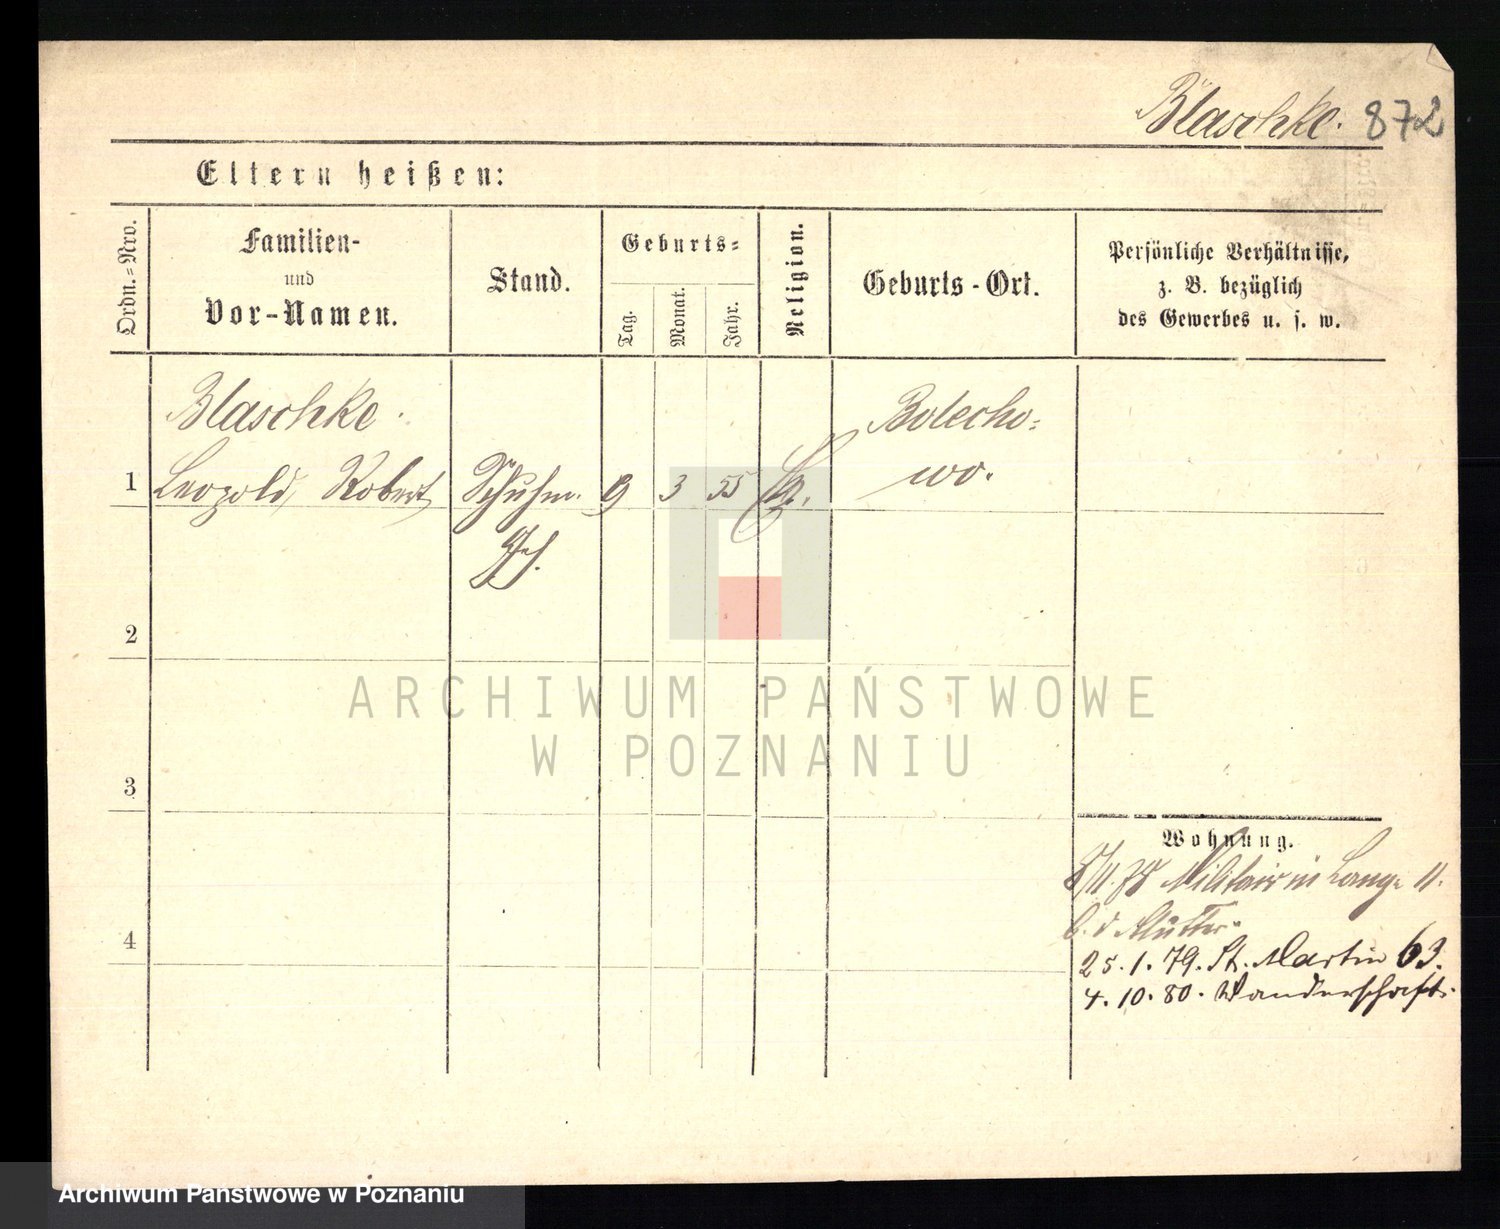 Blaschke. 872
Eltern heißen:
Ordn.=Nro.
Familien-
und
Vor-Namen.
Stand.
Geburts=
Tag.
Monat.
Jahr.
Religion.
Geburts-Ort.
Persönliche Verhältnisse,
z. B. bezüglich
des Gewerbes u. s. w.
Blaschke.
1 Leopold, Robert Schuhm. 9 3 55
Ges.
Bolecho=
wo.
2
3
4
Wohnung.
Militair in Lange 11.
b. d Mutter.
25.1.79. St. Martin 63.
4.10.80. Wanderschaft.
ARCHIWUM PAŃSTWOWE
W POZNANIU
Archiwum Państwowe w Poznaniu